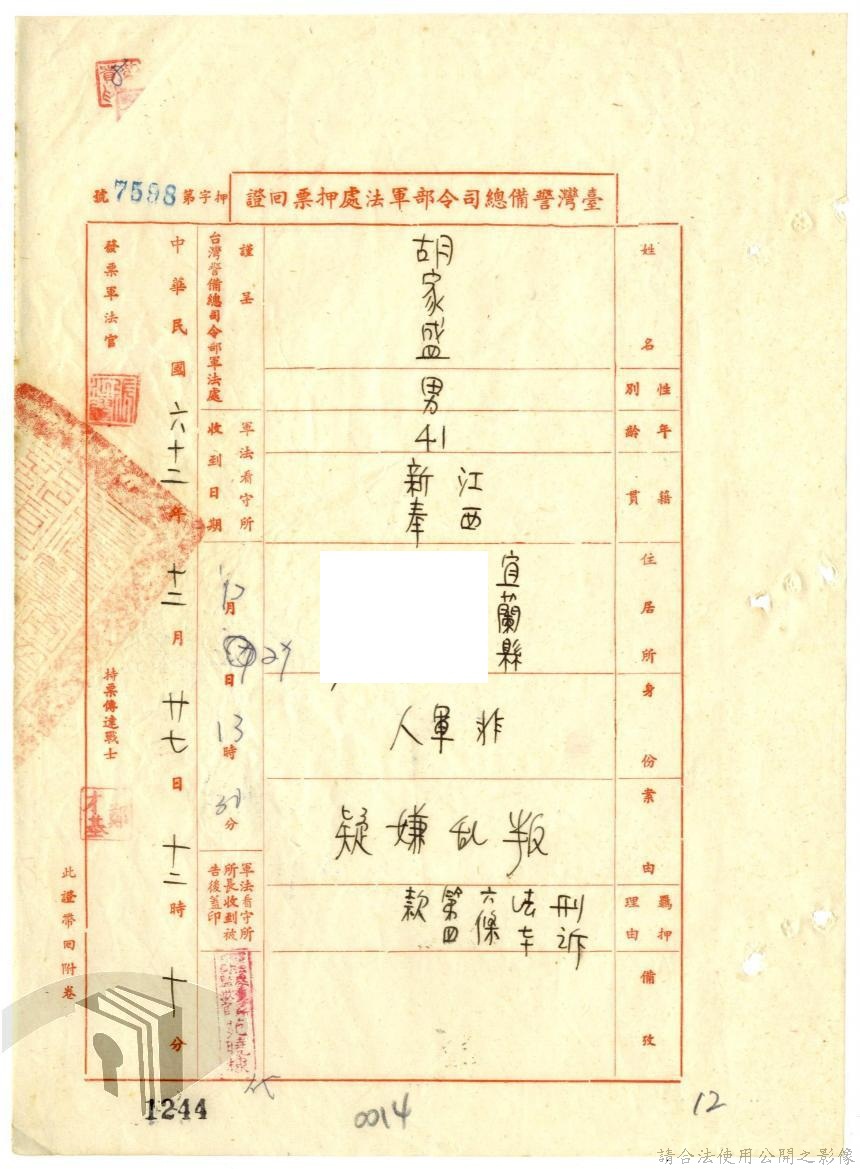 臺灣警備總司令部軍法處押票回證
押字第7598號
姓名
胡家盛
性別
男
年齡
41
籍貫
江西
新奉
住居所
宜蘭縣
身份
非軍人
案由
叛乱嫌疑
羈押理由
刑訴
法
六條
第四
款
備攷
謹呈
台灣警備總司令部軍法處
軍法看守所
收到日期
12月
27日
13時
分
軍法看守所
所長收到被
告後蓋印
中華民國六十二年十二月廿七日十二時十分
發票軍法官
持票傳達戰士
鄭才基
此證帶回附卷
代
1244
0014
12
請合法使用公開之影像